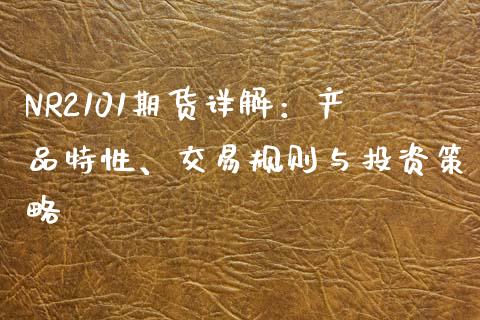 NR2101期货详解：产
品特性、交易规则与投资策
略